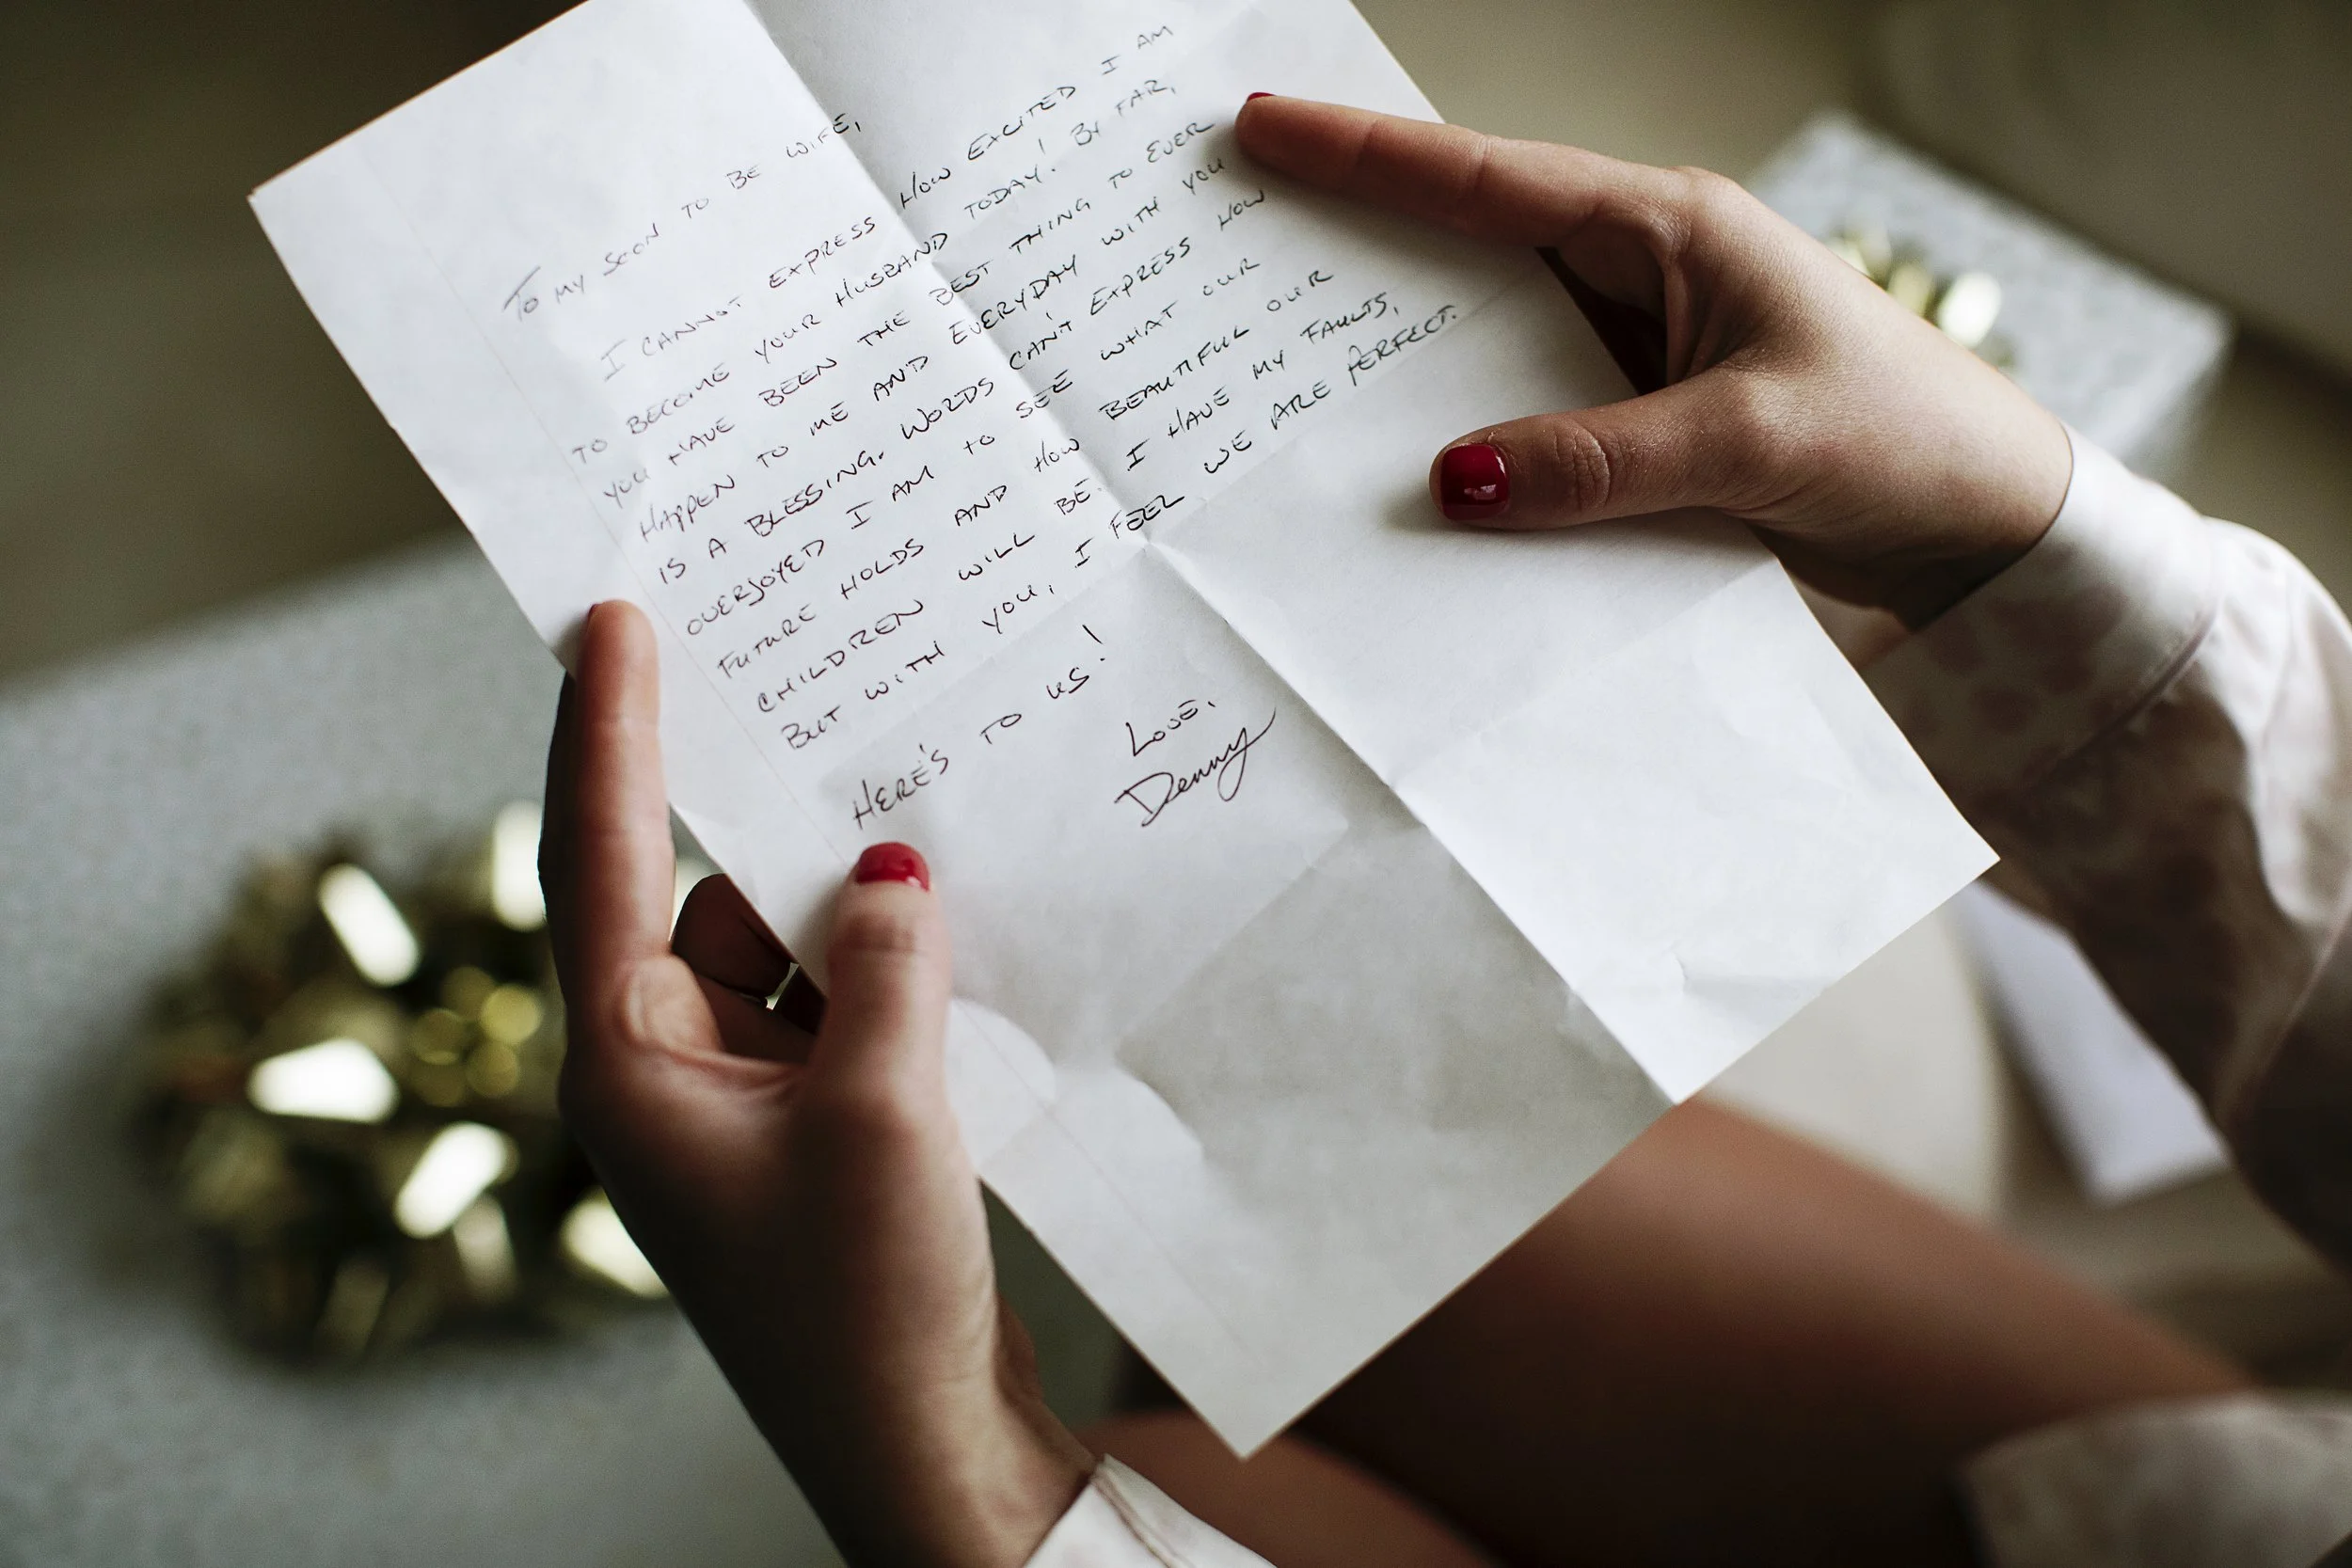 To my soon to be wife,
I cannot express how excited I am
to become your husband today! By far,
you have been the best thing to ever
happen to me and everyday with you
is a blessing. Words can't express how
overjoyed I am to see what our
future holds and how beautiful our
children will be. I have my faults,
but with you, I feel we are perfect.
Here's to us!
Love,
Denny